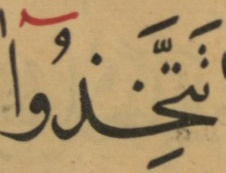 تَتَّخِذُوٓا